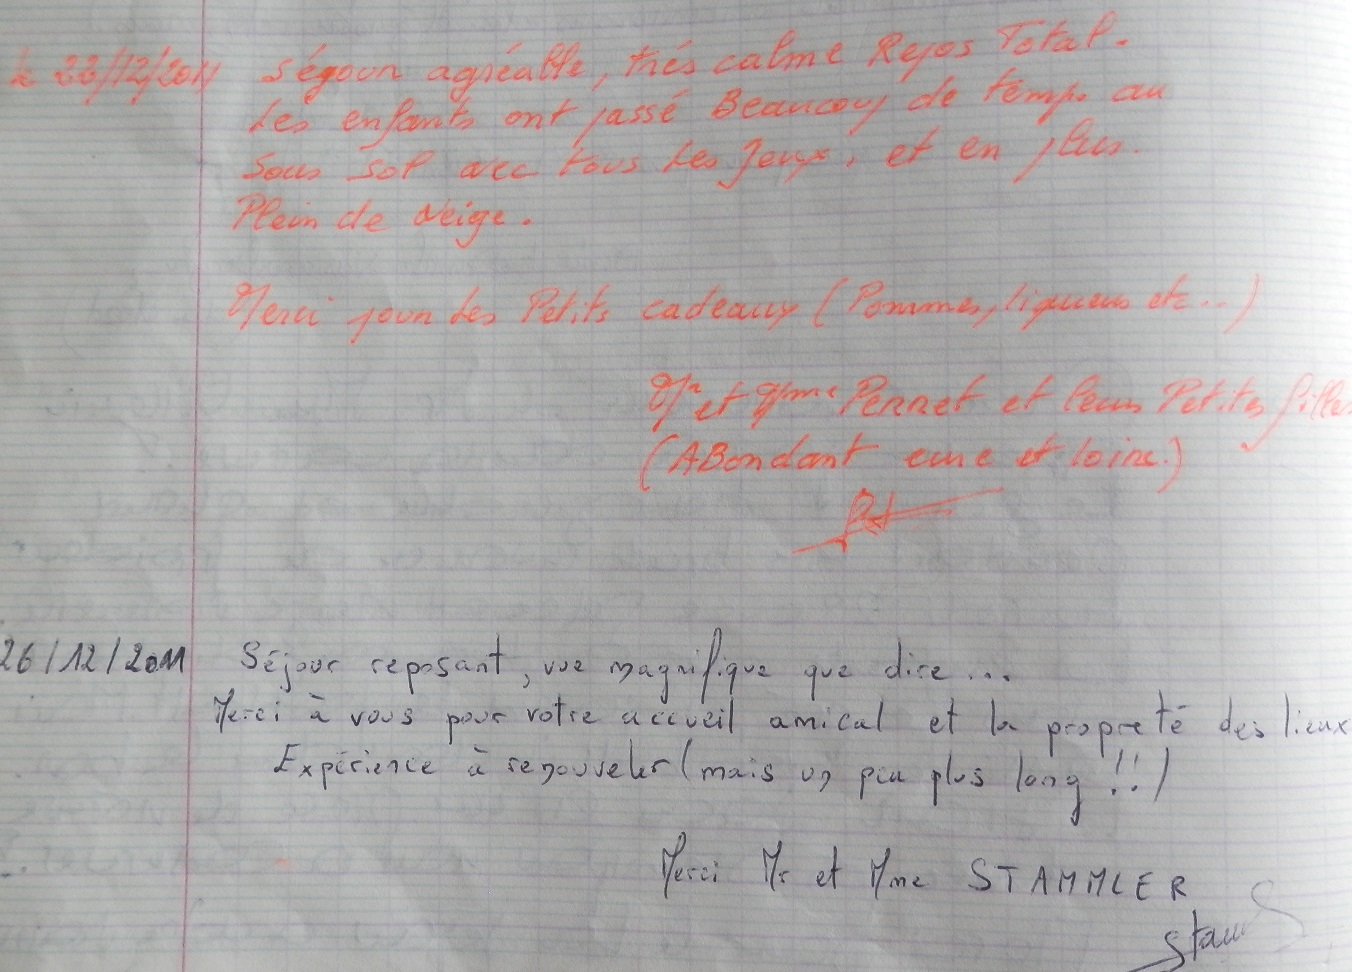 le 22/12/2011 Ségour agréable, trés calme Repos Total.
Les enfants ont passé Beaucoup de temps au
Sous sol avec tous Les Jeux, et en plus.
Plein de Neige.
Merci pour Les Petits cadeaux (Pommes, liqueurs etc...)
Mr et Mme Perret et leurs Petites filles
(ABondant eure et loire.)
26/12/2011 Séjour reposant, vue magnifique que dire...
Merci à vous pour votre accueil amical et la propreté des lieux
Expérience à renouveler (mais un peu plus long !!)
Merci Mr et Mme STAMMLER
Stam